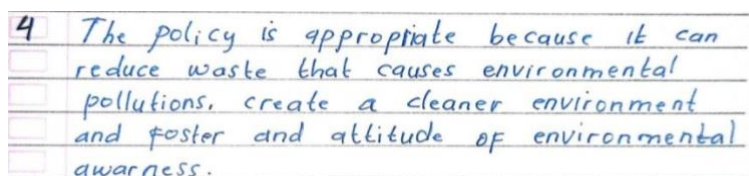 4 The policy is appropriate because it can
reduce waste that causes environmental
pollutions, create a cleaner environment
and foster and attitude of environmental
awarness.